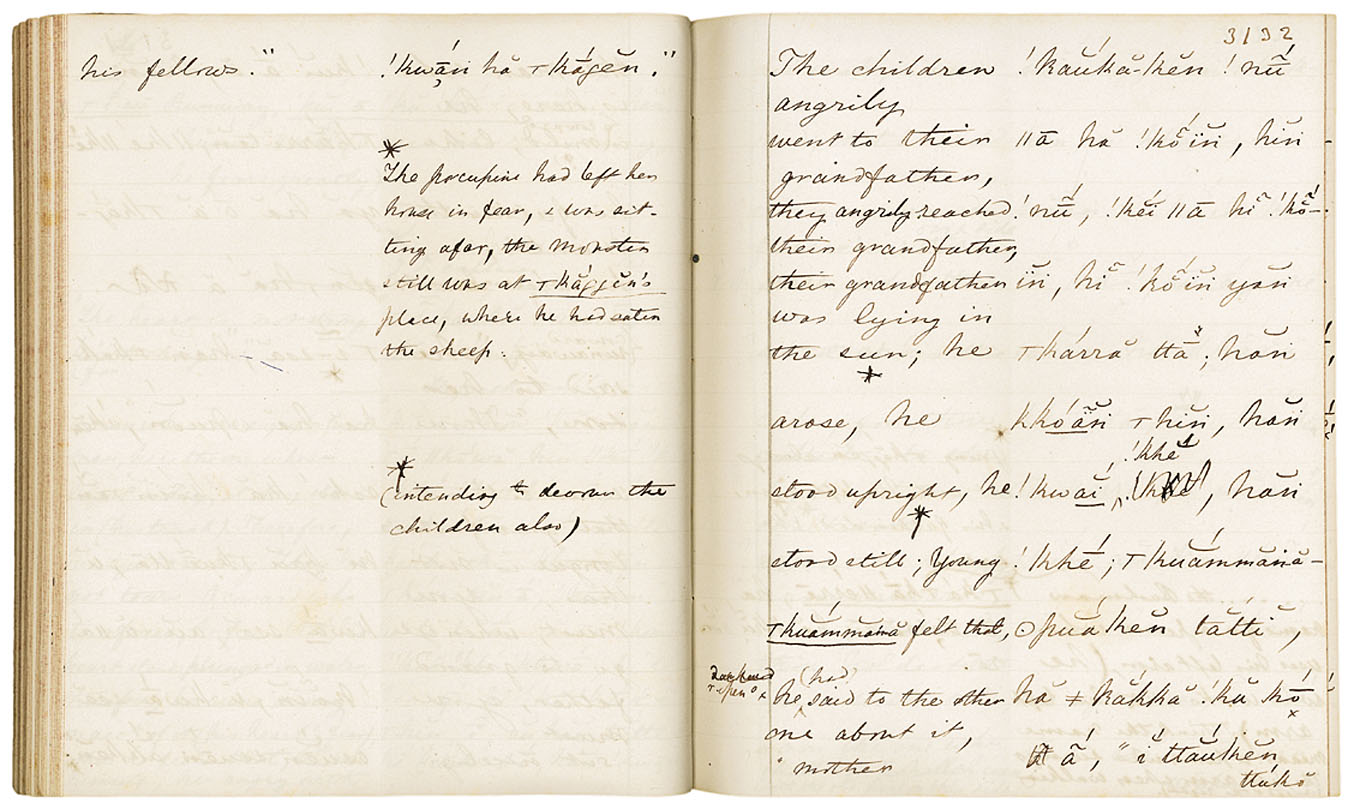 his fellows." !kwā́ni hă ⊤kágĕn."
*
The porcupine had left her
house in fear, & was sit-
ting afar, the monster
still was at ⊤kággĕn's
place, where he had eaten
the sheep.
*
(intending to devour the
children also)
3132
The children !kaúkă-kĕn !nū́
angrily
went to their ||ā hă !kṍĭn, hĭn
grandfather,
they angrily reached !nū́, !kĕí ||ā hĭ !kṍ-
their grandfather,
their grandfather ĭn, hĭ !kṍĭn yăn
was lying in
the sun; he ⊤kárră ttă; hăn
*
arose, he kkóăn ⊤hĭn, hăn
!khé
stood upright, he !kwāí, hăn
*
stood still; Young !khé; ⊤kuámmănă-
⊤kuámmănă felt that, ʘpuá kĕn tătti,
(had)
he said to the other hă ǂkákkă !kă kṓ
one about it, á, "ĭ ttaúkĕn
"mother ttúkŏ